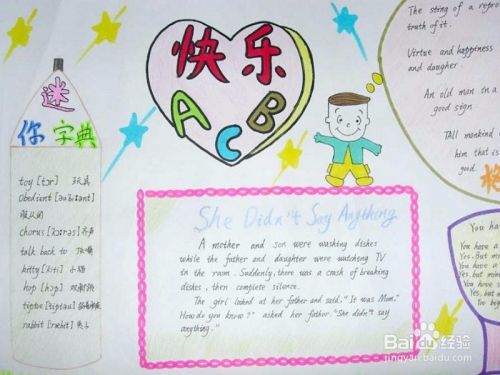 快乐
A C B
迷
你字典
toy [tɔr] 玩具
obedient
服从的
chorus [kɔrəs] 齐声
talk back to 顶嘴
kitty [kiti] 小猫
hop [hɔp]
tiptoe [tiptəu]
rabbit [ræbit] 兔子
She Didn't Say Anything
A mother and son were washing dishes
while the father and daughter were watching TV
in the room. Suddenly, there was a crash of breaking
dishes, then complete silence.
The girl looked at her father and said, "It was Mum."
"How do you know?" asked her father. "She didn't say
anything."
The sting of a repro
truth of it.
Virtue and happiness
and daugher.
An old man in a
good sign
TAll mankind
him that is
good.
格
You ha
You have a
Yes. But m
You have a
Yes, but m
You have s
Yes, but n
to big
Baidu 经验
jingyan.baidu.com